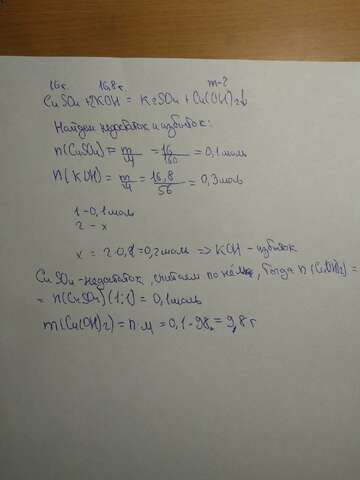 16г. 16,8г. m-?
CuSO4 + 2KOH = K2SO4 + Cu(OH)2↓
Найдем недостаток и избыток:
n(CuSO4) = m/M = 16/160 = 0,1 моль
n(KOH) = m/M = 16,8/56 = 0,3 моль
1 - 0,1 моль
2 - x
x = 2·0,1 = 0,2 моль => KOH - избыток
CuSO4 - недостаток, считаем по нему, тогда n(Cu(OH)2) =
= n(CuSO4) (1:1) = 0,1 моль
m(Cu(OH)2) = n·M = 0,1·98 = 9,8 г